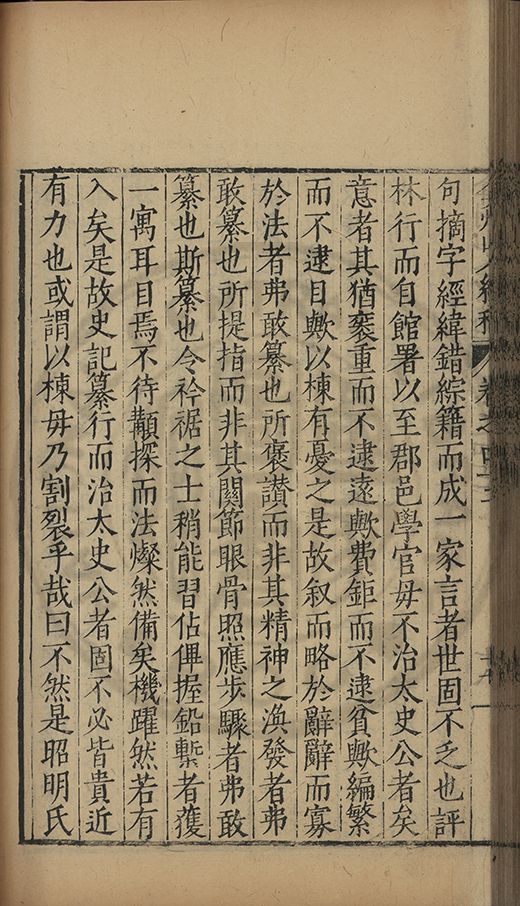 句摘字經緯錯綜籍而成一家言者世固不乏也評
林行而自館署以至郡邑學官毋不治太史公者矣
意者其猶褒重而不逮遠歟費鉅而不逮貧歟編繁
而不逮目歟以棟有憂之是故叙而略於辭辭而寡
於法者弗敢纂也所褒讃而非其精神之渙發者弗
敢纂也所提指而非其關節眼骨照應步驟者弗敢
纂也斯纂也令衿裾之士稍能習佔俾握鉛槧者獲
一寓耳目焉不待顜探而法燦然備矣機躍然若有
入矣是故史記纂行而治太史公者固不必皆貴近
有力也或謂以棟毋乃割裂乎哉曰不然是昭明氏
卷之四十三